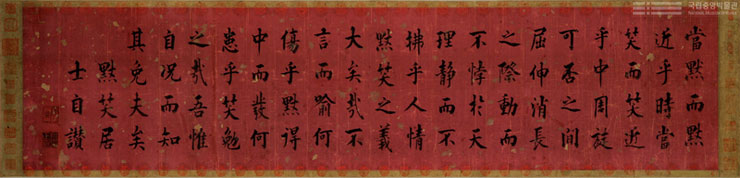 當黙而黙
近乎時當
笑而笑近
乎中周旋
可否之間
屈伸消長
之際動而
不悖於天
理靜而不
拂乎人情
黙笑之義
大矣哉不
言而喻何
傷乎黙得
中而發何
患乎笑勉
之哉吾惟
自况而知
其免夫矣
黙笑居
士自讚
국립중앙박물관
NATIONAL MUSEUM OF KOREA